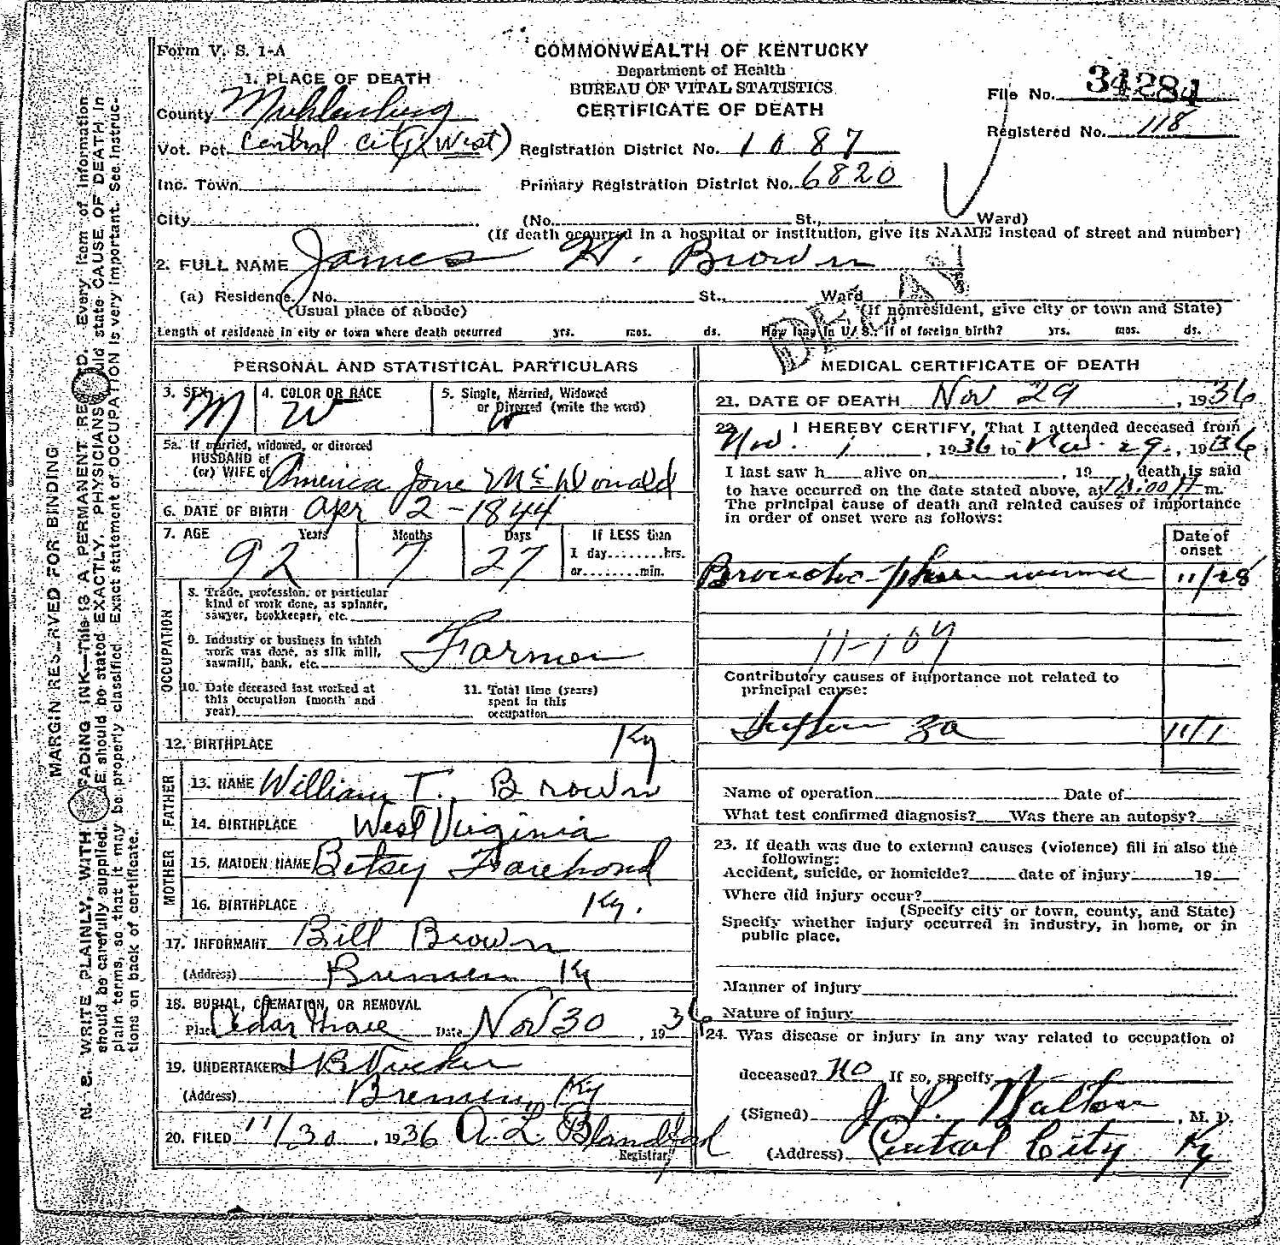 Form V. S. 1-A
COMMONWEALTH OF KENTUCKY
Department of Health
BUREAU OF VITAL STATISTICS
CERTIFICATE OF DEATH
File No. 34284
Registered No. 118
1. PLACE OF DEATH
County Muhlenburg
Vot. Pct. Central City (West)
Registration District No. 1087
Inc. Town
Primary Registration District No. 6820
City (No. St., Ward)
(If death occurred in a hospital or institution, give its NAME instead of street and number)
2. FULL NAME James H. Brown
(a) Residence. No. St., Ward
(Usual place of abode) (If nonresident, give city or town and State)
Length of residence in city or town where death occurred yrs. mos. ds. How long in U. S. if of foreign birth? yrs. mos. ds.
DELAY
PERSONAL AND STATISTICAL PARTICULARS
3. SEX M
4. COLOR OR RACE W
5. Single, Married, Widowed
or Divorced (write the word)
W
5a. If married, widowed, or divorced
HUSBAND of
(or) WIFE of America Jane McDonald
6. DATE OF BIRTH Apr 2-1844
7. AGE Years Months Days If LESS than
92 7 27 1 day hrs.
or min.
OCCUPATION
8. Trade, profession, or particular
kind of work done, as spinner,
sawyer, bookkeeper, etc.
9. Industry or business in which
work was done, as silk mill,
sawmill, bank, etc.
Farmer
10. Date deceased last worked at
this occupation (month and
year)
11. Total time (years)
spent in this
occupation
12. BIRTHPLACE Ky
FATHER
13. NAME William T. Brown
14. BIRTHPLACE West Virginia
MOTHER
15. MAIDEN NAME Betsy
16. BIRTHPLACE Ky.
17. INFORMANT Bill Brown
(Address) Bremen Ky
18. BURIAL, CREMATION, OR REMOVAL
Place Cedar Date Nov 30, 1936
19. UNDERTAKER Tucker
(Address) Bremen, Ky
20. FILED 11/30, 1936 A L Blandford
Registrar
MEDICAL CERTIFICATE OF DEATH
21. DATE OF DEATH Nov 29, 1936
22. I HEREBY CERTIFY, That I attended deceased from
Nov. 1, 1936 to Nov. 29, 1936
I last saw h alive on , 19 , death is said
to have occurred on the date stated above, at m.
The principal cause of death and related causes of importance
in order of onset were as follows:
Date of
onset
Broncho-pneumonia 11/28
11-107
Contributory causes of importance not related to
principal cause:
11/1
Name of operation Date of
What test confirmed diagnosis? Was there an autopsy?
23. If death was due to external causes (violence) fill in also the
following:
Accident, suicide, or homicide? date of injury 19
Where did injury occur?
(Specify city or town, county, and State)
Specify whether injury occurred in industry, in home, or in
public place.
Manner of injury
Nature of injury
24. Was disease or injury in any way related to occupation of
deceased? No If so, specify
(Signed) Walton, M. D.
(Address) Central City Ky
MARGIN RESERVED FOR BINDING
N. B. WRITE PLAINLY, WITH UNFADING INK—THIS IS A PERMANENT RECORD. Every item of information
should be carefully supplied. AGE should be stated EXACTLY. PHYSICIANS should state CAUSE OF DEATH in
plain terms, so that it may be properly classified. Exact statement of OCCUPATION is very important. See instruc-
tions on back of certificate.